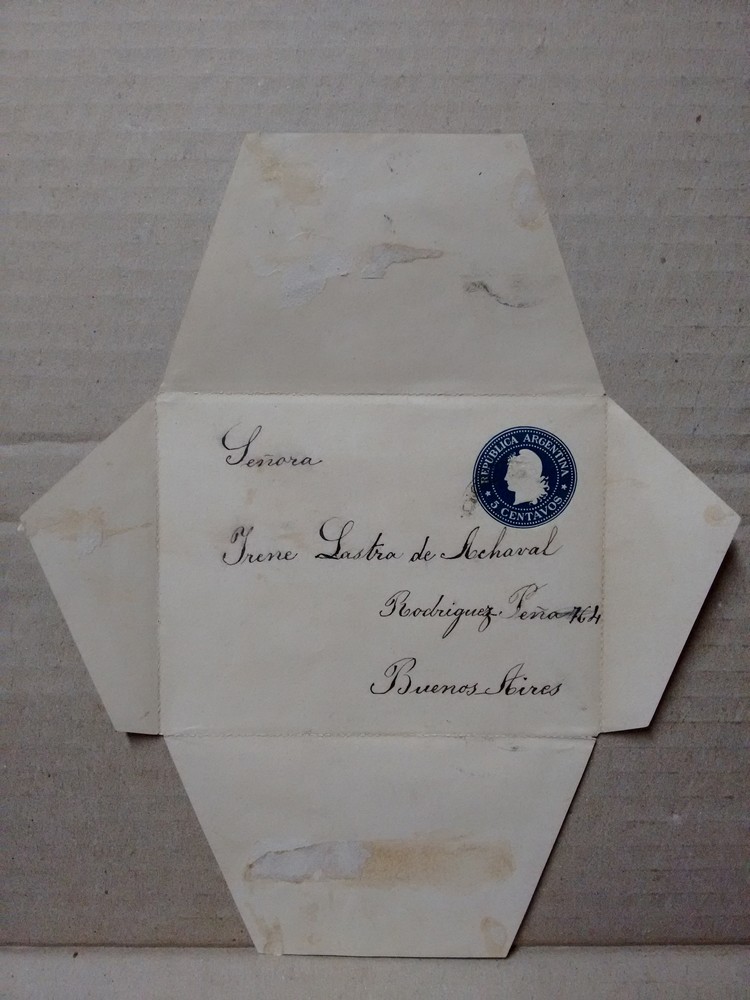 Señora
REPÚBLICA ARGENTINA
5 CENTAVOS
Irene Lastra de Achaval
Rodriguez Peña 764
Buenos Aires